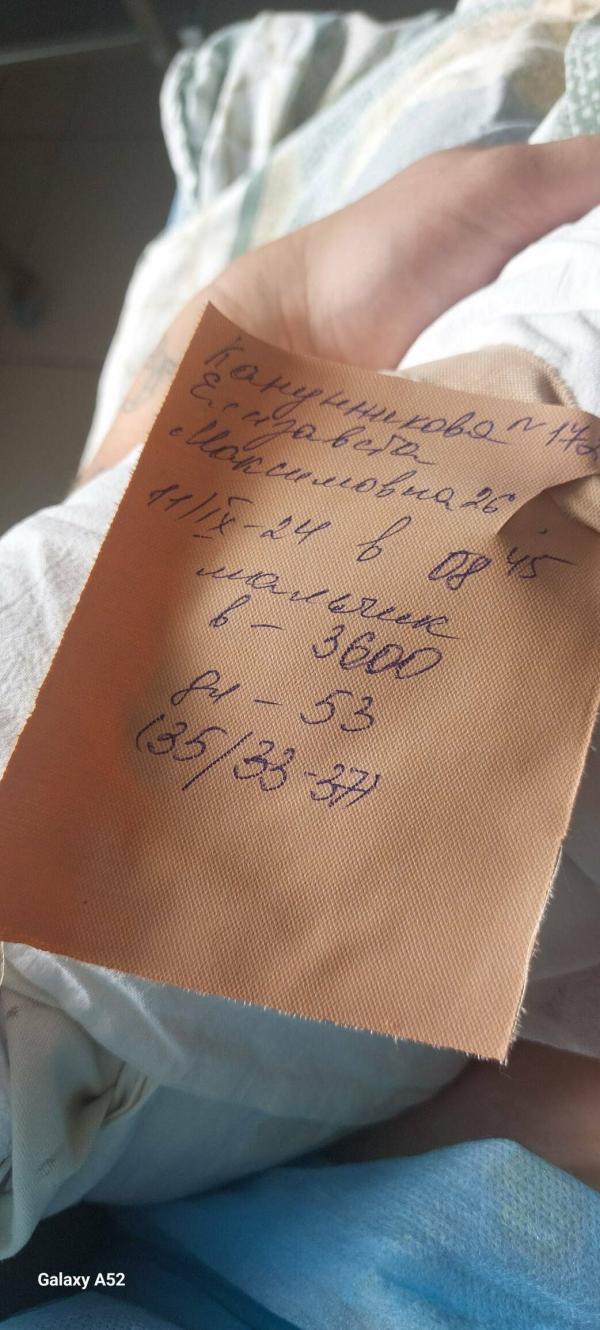 Канунникова № 172
Елизавета
Максимовна 26
11/IX-24 в 08 45
мальчик
в - 3600
дл - 53
(35/33-37)
Galaxy A52